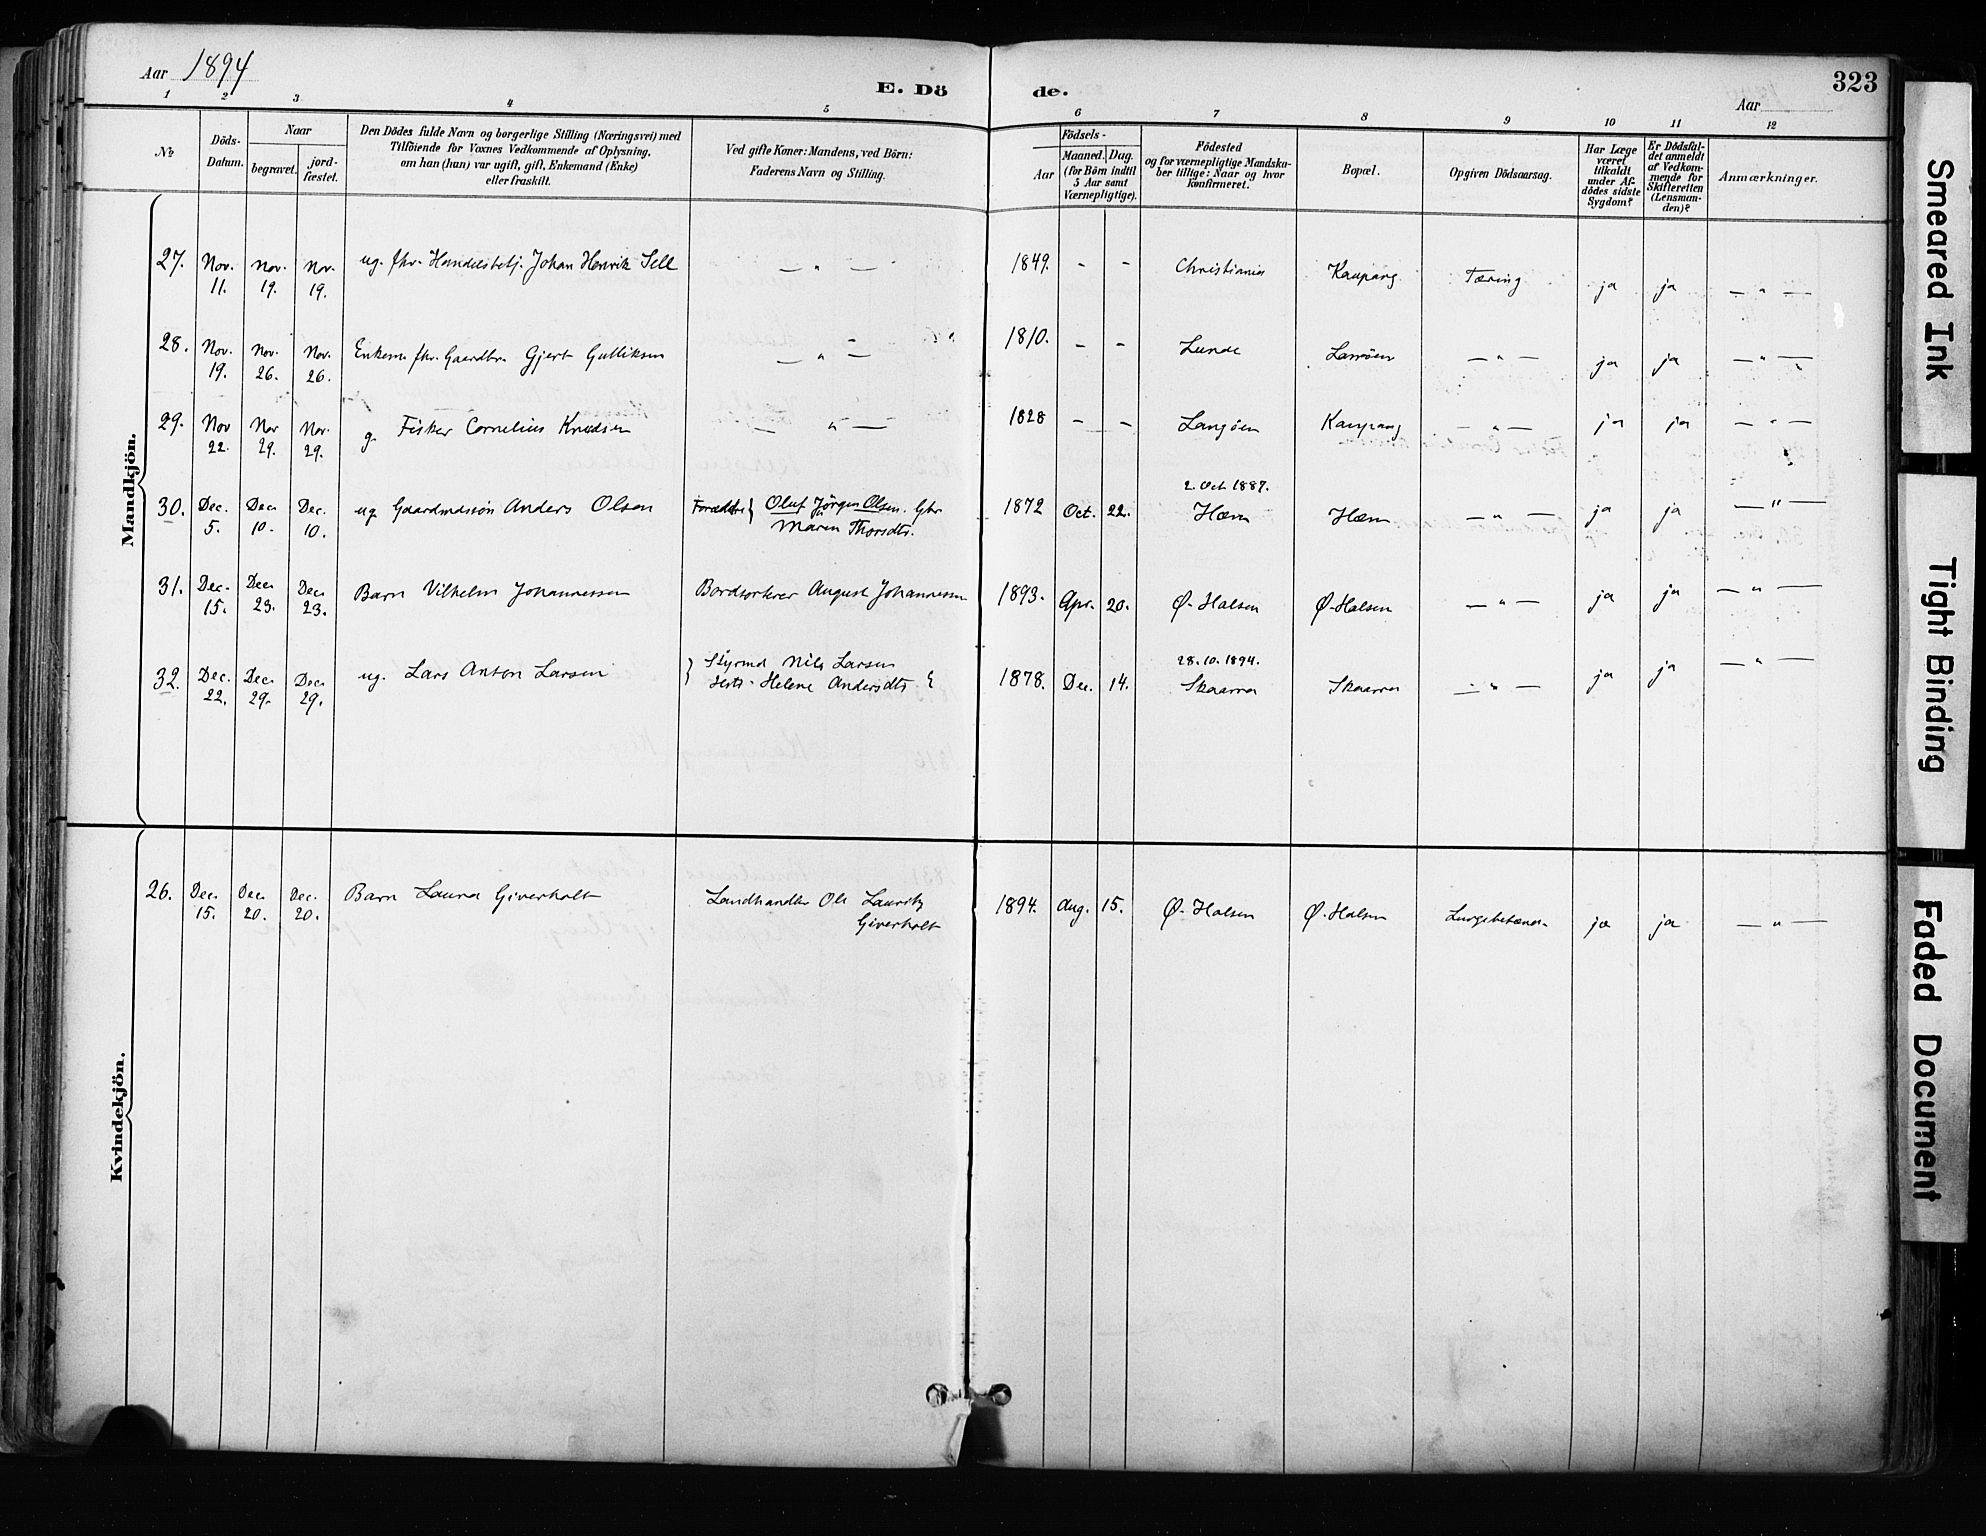 Aar 1894
E. Dö
de.
Aar
323
1 2 3 4 5 6 7 8 9 10 11 12
No
Döds-Datum.
Naar
begravet.
jord-fæstet.
Den Dödes fulde Navn og borgerlige Stilling (Næringsvei) med
Tilföiende for Voxnes Vedkommende af Oplysning,
om han (hun) var ugift, gift, Enkemand (Enke)
eller fraskilt.
Ved gifte Koner: Mandens, ved Börn:
Faderens Navn og Stilling.
Födsels-
Aar
Maaned. Dag.
(for Börn indtil
5 Aar samt
Værnepligtige).
Födested
og for værnepligtige Mandska-
ber tillige: Naar og hvor
konfirmeret.
Bopæl.
Opgiven Dödsaarsag.
Har Læge
været
tilkaldt
under Af-
dödes sidste
Sygdom?
Er Dödsfal-
det anmeldt
af Vedkom-
mende for
Skifteretten
(Lensman-
den)?
Anmærkninger.
Mandkjön.
27. Nov. 11. Nov. 19. Nov. 19. ug. fhv. Handelsbetj. Johan Henrik Sell — „ — 1849. - - Christiania Kaupang Tæring ja ja — „ —
28. Nov. 19. Nov. 26. Nov. 26. Enkem. fhv. Gaardbr. Gjert Gulliksen — „ — 1810. - - Lunde Lamöen — „ — ja ja — „ —
29. Nov 22. Nov 29. Nov. 29. g. Fisker Cornelius Knudsen — „ — 1828 - - Langöen Kaupang — „ — ja ja — „ —
2. Oct 1887.
30. Dec. 5. Dec 10. Dec. 10. ug. Gaardmdssön Anders Olsen Oluf Jörgen Olsen. Gbr 1872 Oct. 22. Hæm Hæm — „ — ja ja — „ —
Maren Thorsdtr.
31. Dec. 15. Dec 23. Dec 23. Barn Vilhelm Johannessen Bordsorterer August Johannessen 1893. Apr. 20. Ø-Halsen Ø-Halsen — „ — ja ja — „ —
28.10.1894.
32. Dec. 22. Dec 29. Dec 29. ug. Lars Anton Larsen } Styrmd Nils Larsen 1878. Dec. 14. Skaarra Skaarra — „ — ja ja — „ —
Helene Andersdtr {
Kvindekjön.
26. Dec. 15. Dec 20. Dec. 20. Barn Laura Giverholt Landhandler Ole Lauritz 1894. Aug. 15. Ø-Halsen Ø-Halsen Lungebetænd. ja ja — „ —
Giverholt
Smeared Ink
Tight Binding
Faded Document